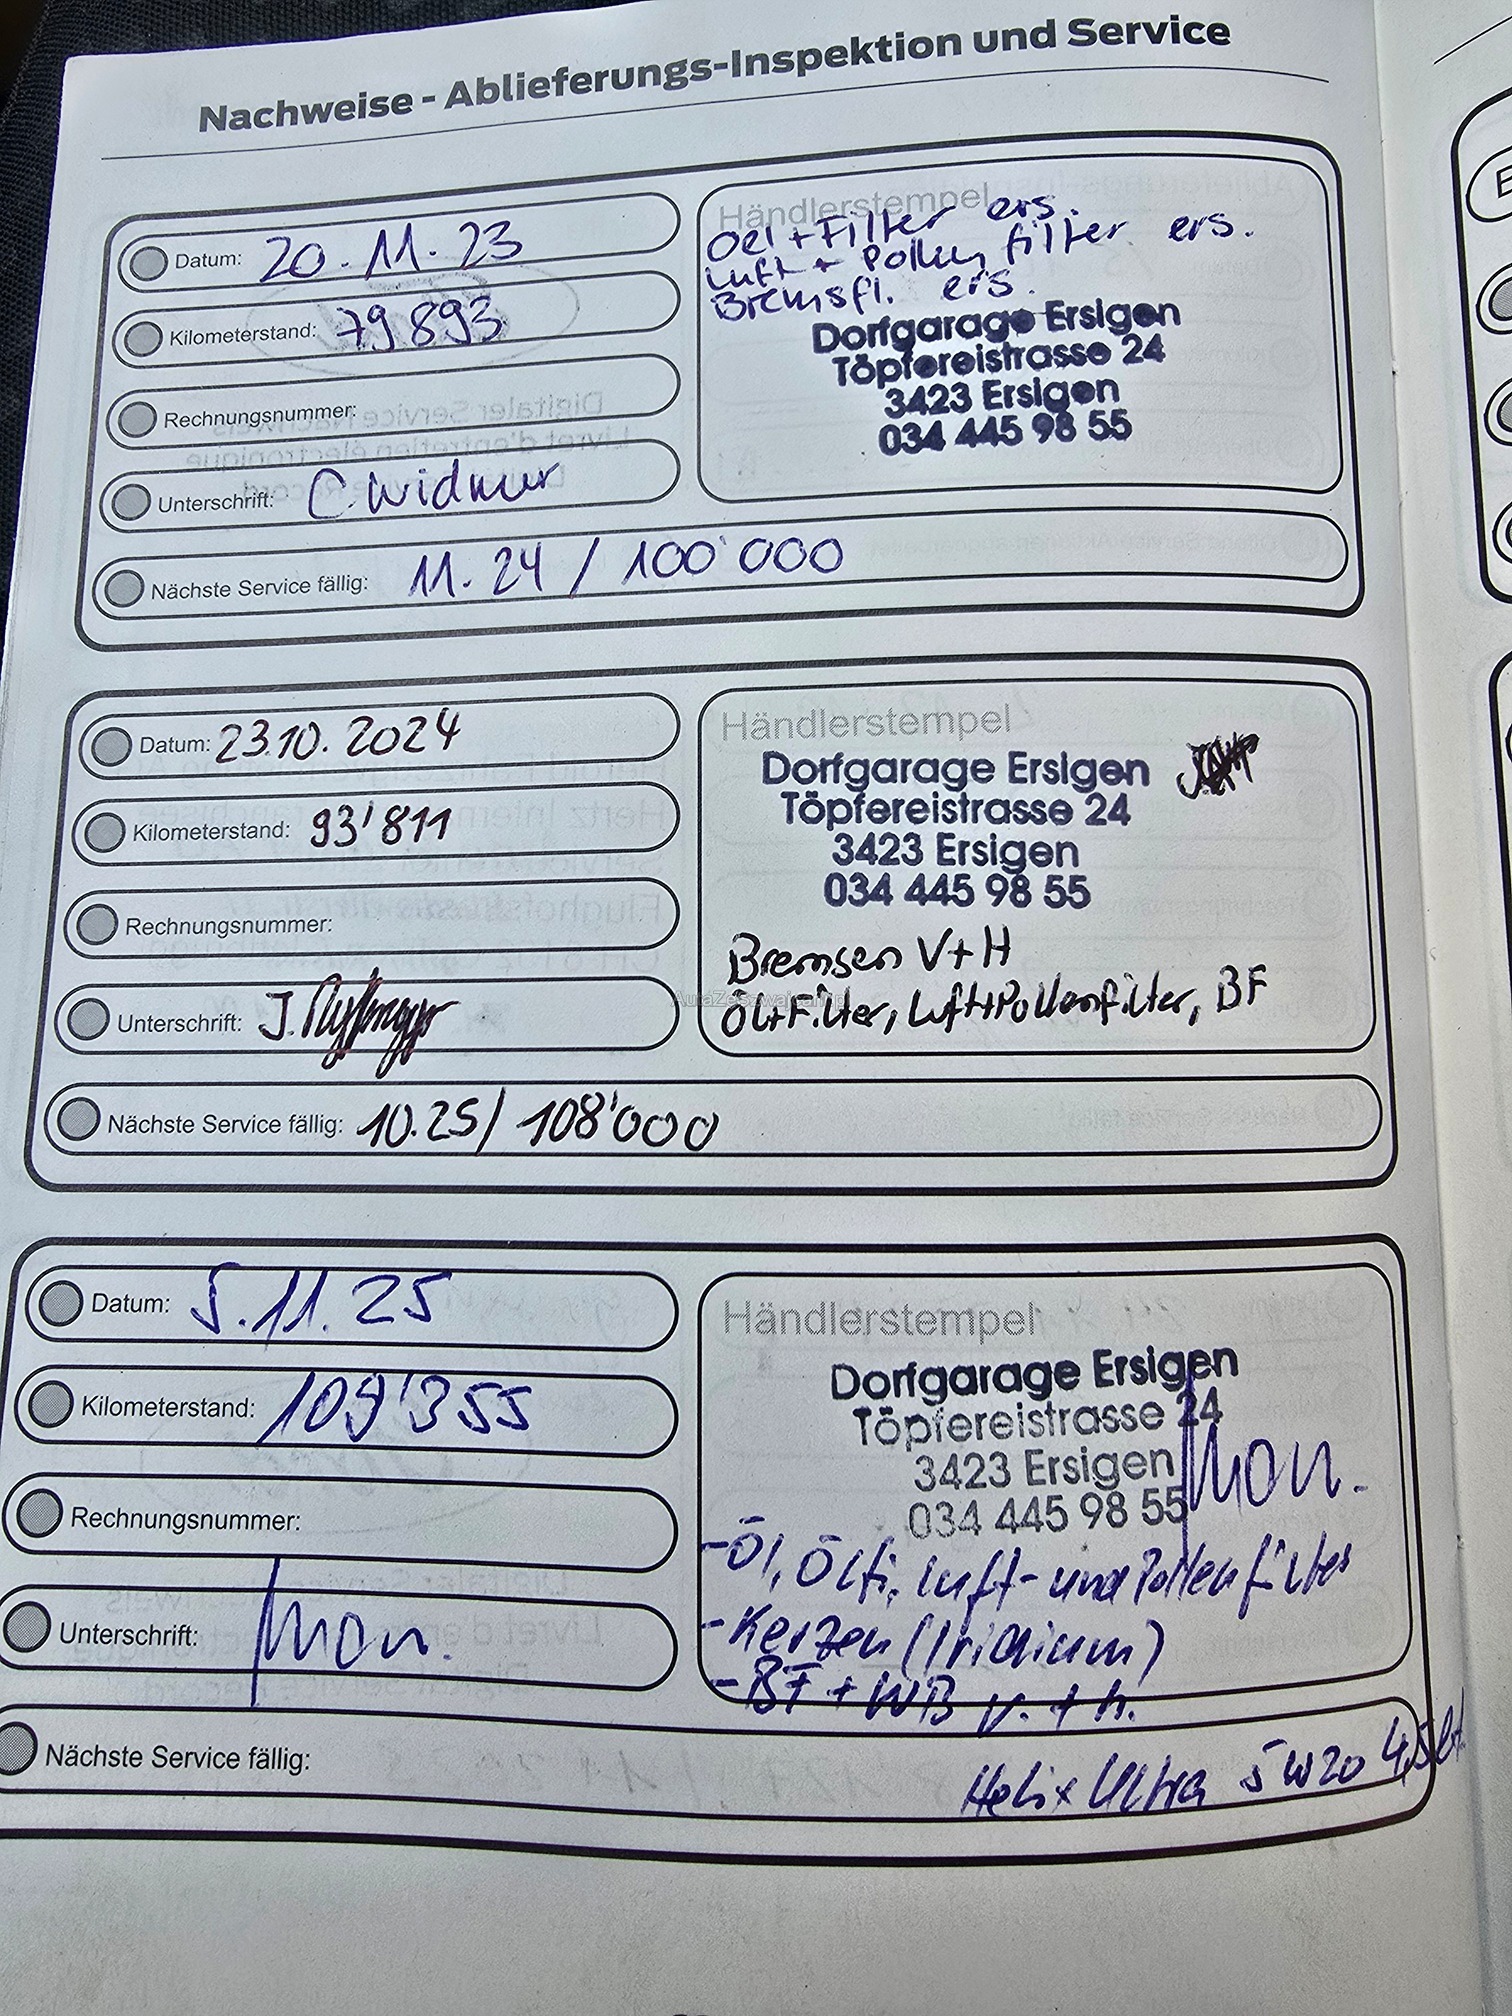 Nachweise - Ablieferungs-Inspektion und Service
Datum: 20.11.23
Kilometerstand: 79893
Rechnungsnummer:
Unterschrift: C Widmer
Nächste Service fällig: 11.24 / 100'000
Händlerstempel
Oel + Filter ers.
Luft + Pollen filter ers.
Bremsfl. ers.
Dorfgarage Ersigen
Töpfereistrasse 24
3423 Ersigen
034 445 98 55
Datum: 23.10.2024
Kilometerstand: 93'811
Rechnungsnummer:
Unterschrift: J.
Nächste Service fällig: 10.25 / 108'000
Händlerstempel
Dorfgarage Ersigen
Töpfereistrasse 24
3423 Ersigen
034 445 98 55
Bremsen V+H
Öl+Filter, Luft+Pollenfilter, BF
Datum: 5.11.25
Kilometerstand: 109'355
Rechnungsnummer:
Unterschrift:
Nächste Service fällig:
Händlerstempel
Dorfgarage Ersigen
Töpfereistrasse 24
3423 Ersigen
034 445 98 55
- Öl, Ölfi, Luft- und Pollenfilter
- Kerzen (Iridium)
- BF + WB v. + h.
Helix Ultra 5W20 4,5 lt.